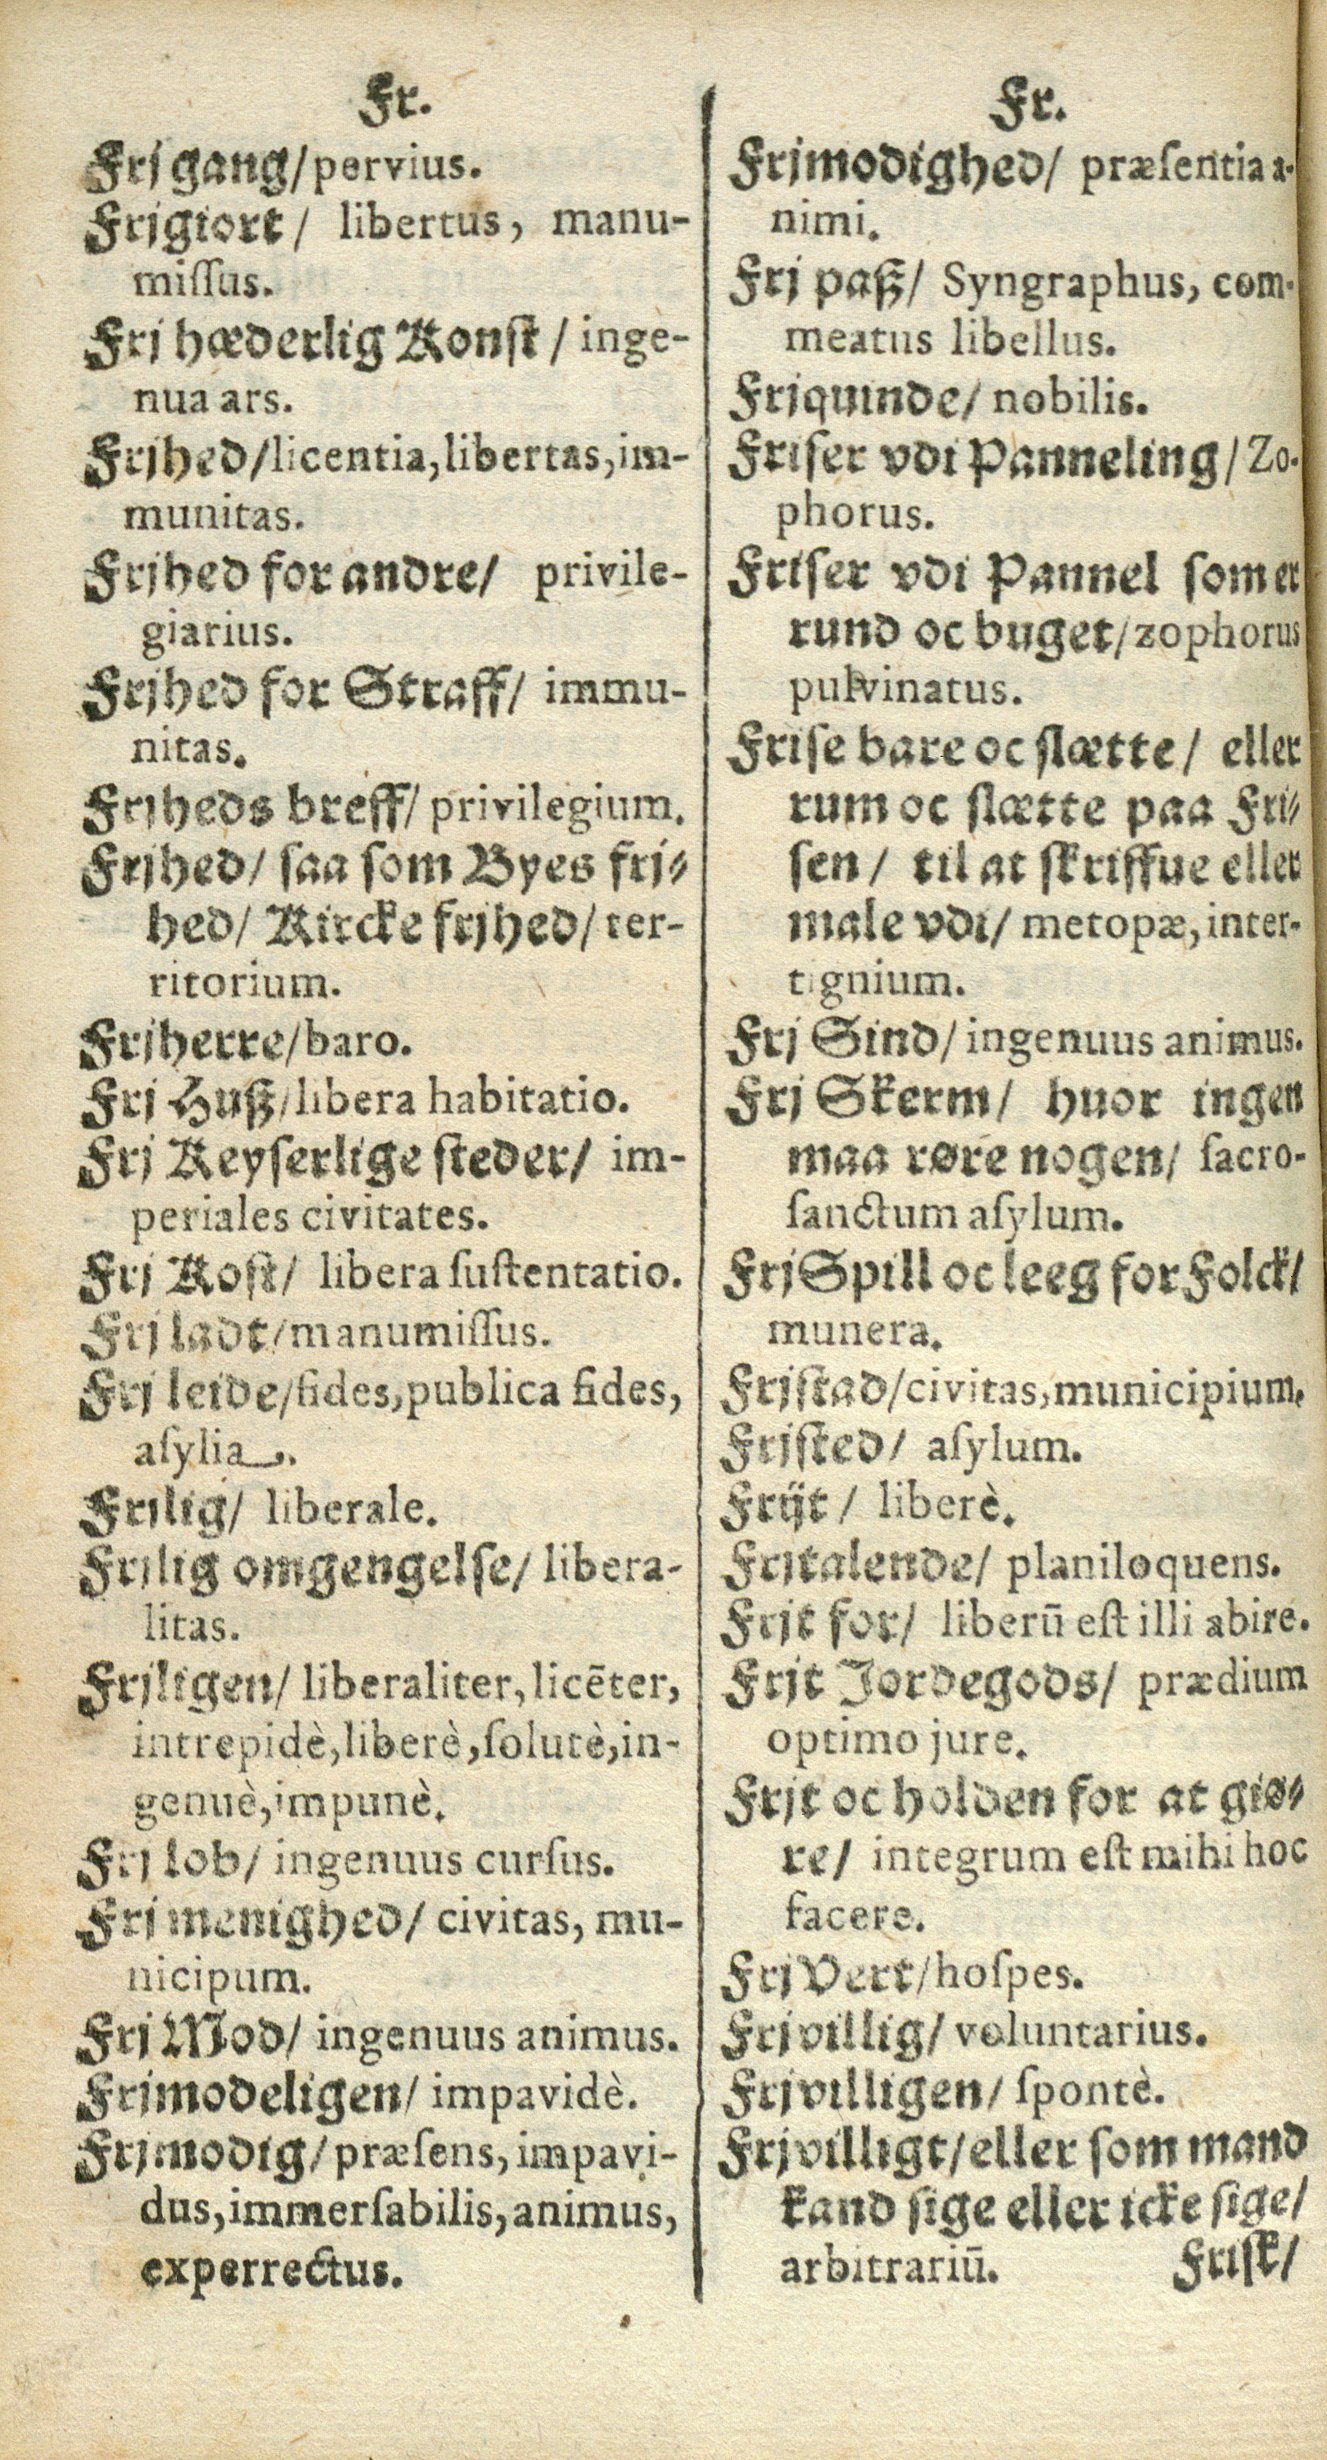 Fr.
Frj gang/pervius.
Frjgiort/ libertus, manu-
miſſus.
Frj hæderlig Konſt/ inge-
nua ars.
Frjhed/licentia,libertas,im-
munitas.
Frjhed for andre/ privile-
giarius.
Frjhed for Straff/ immu-
nitas.
Frjheds breff/ privilegium.
Frjhed/ ſaa ſom Byes frj-
hed/ Kircke frjhed/ ter-
ritorium.
Frjherre/baro.
Frj Huß/libera habitatio.
Frj Keyſerlige ſteder/ im-
periales civitates.
Frj Koſt/ libera ſuſtentatio.
Frj ladt/manumiſſus.
Frj leide/fides,publica fides,
aſylia.
Frilig/ liberale.
Frilig omgengelſe/ libera-
litas.
Frjligen/ liberaliter,licēter,
intrepidè,liberè,ſolutè,in-
genuè,impunè.
Frj lob/ ingenuus curſus.
Frj menighed/ civitas, mu-
nicipum.
Frj Mod/ ingenuus animus.
Frjmodeligen/ impavidè.
Frjmodig/præſens, impavi-
dus,immerſabilis,animus,
experrectus.
Fr.
Frjmodighed/ præſentia a-
nimi.
Frj paß/ Syngraphus, com-
meatus libellus.
Frjquinde/ nobilis.
Friſer vdi Panneling/ Zo-
phorus.
Friſer vdi Pannel ſom er
rund oc buget/zophorus
pulvinatus.
Friſe bare oc ſlætte/ eller
rum oc ſlætte paa Fri-
ſen/ til at ſkriffue eller
male vdi/ metopæ,inter-
tignium.
Frj Sind/ingenuus animus.
Frj Skerm/ huor ingen
maa røre nogen/ ſacro-
ſanctum aſylum.
Frj Spill oc leeg for Folck/
munera.
Frjſtad/civitas,municipium,
Frjſted/ aſylum.
Frijt/ liberè.
Frjtalende/ planiloquens.
Frjt for/ liberū eſt illi abire.
Frjt Jordegods/ prædium
optimo jure.
Frjt oc holden for at giø-
re/ integrum eſt mihi hoc
facere.
Frj Vert/hoſpes.
Frjvillig/ voluntarius.
Frjvilligen/ ſpontè.
Frjvilligt/eller ſom mand
kand ſige eller icke ſige/
arbitrariū.
Friſk/